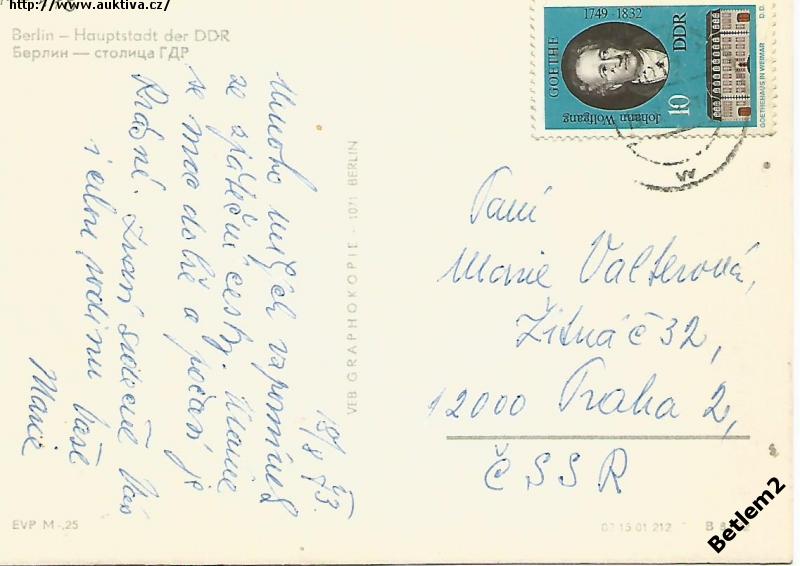 http://www.auktiva.cz/
Berlin – Hauptstadt der DDR
Берлин — столица ГДР
18/8 73.
Mnoho milých vzpomínek
ze zpáteční cesty. Máme
se moc dobře a počasí je
krásné. Zvoní srdečně Vás
i celou rodinu Vaše
Marie
VEB GRAPHOKOPIE - 1071 BERLIN
GOETHE
1749 - 1832
Johann Wolfgang
10
DDR
GOETHEHAUS IN WEIMAR
D.D.
Paní
Marie Valterová,
Žitná č 32,
12000 Praha 2,
ČSSR
EVP M -,25
07 15 01 212
B
Betlem2